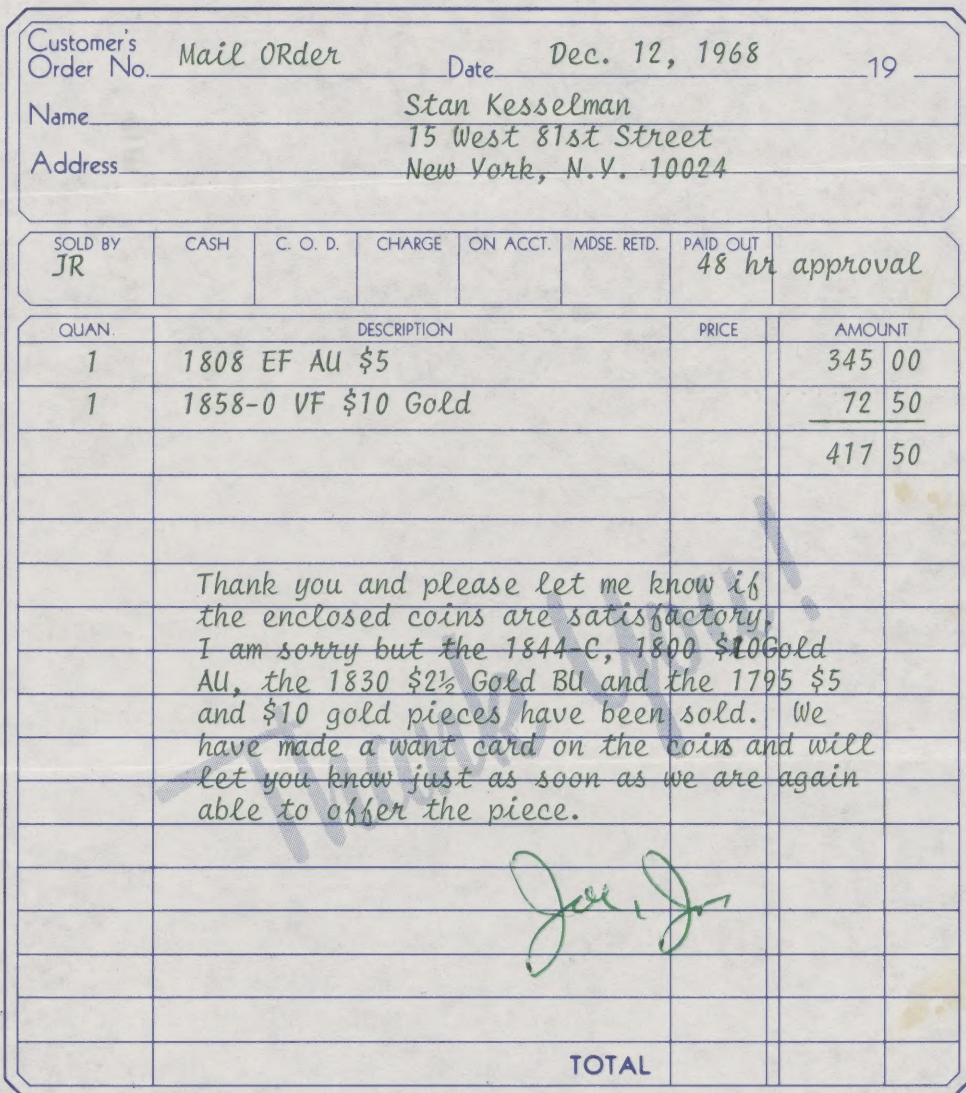 Customer's
Order No. Mail ORder Date Dec. 12, 1968 19
Name Stan Kesselman
15 West 81st Street
Address New York, N.Y. 10024
SOLD BY CASH C. O. D. CHARGE ON ACCT. MDSE. RETD. PAID OUT
JR 48 hr approval
QUAN. DESCRIPTION PRICE AMOUNT
1 1808 EF AU $5 345 00
1 1858-O VF $10 Gold 72 50
417 50
Thank you and please let me know if
the enclosed coins are satisfactory.
I am sorry but the 1844-C, 1800 $10Gold
AU, the 1830 $2½ Gold BU and the 1795 $5
and $10 gold pieces have been sold. We
have made a want card on the coins and will
let you know just as soon as we are again
able to offer the piece.
Thank You!
Joe, Jr
TOTAL